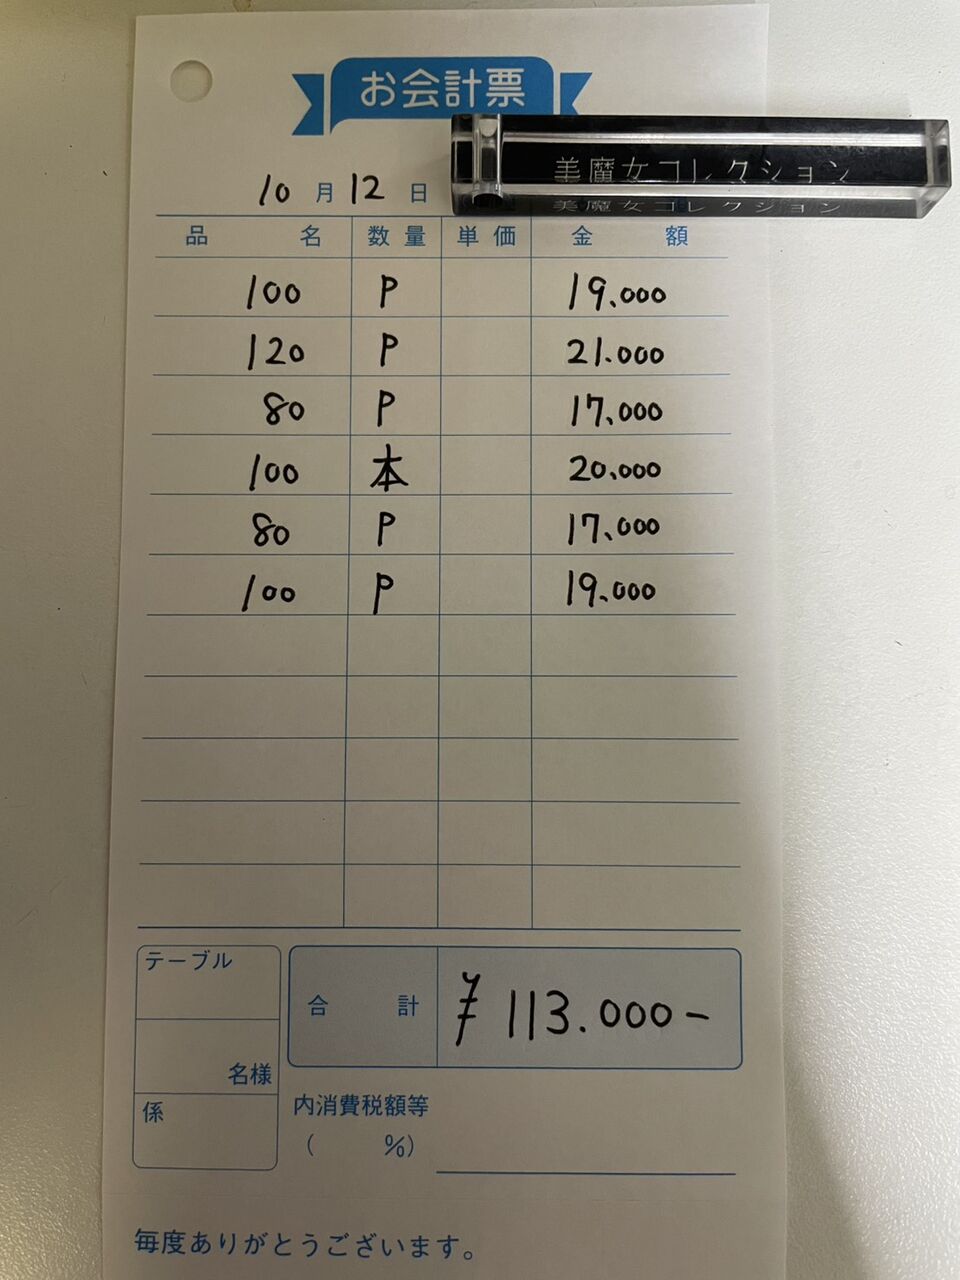 お会計票
美魔女コレクション
美魔女コレクション
10月12日
品名 数量 単価 金額
100 P 19.000
120 P 21.000
80 P 17.000
100 本 20.000
80 P 17.000
100 P 19.000
テーブル
名様
係
合計 ¥113.000-
内消費税額等
( %)
毎度ありがとうございます。